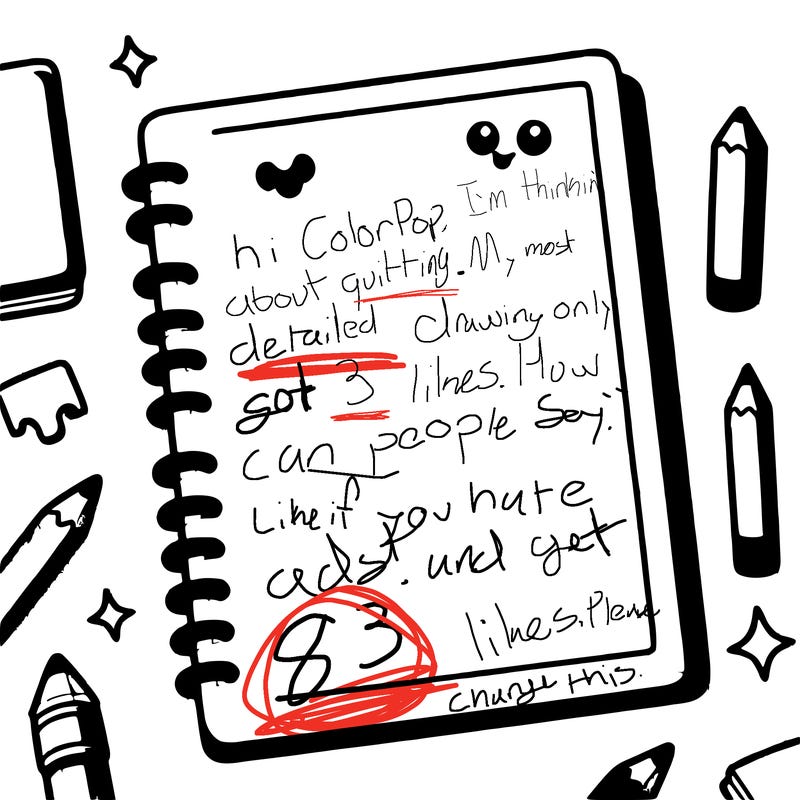 hi ColorPop, I'm thinkin
about quitting. My most
detailed drawing only
got 3 likes. How
can people say:
Like if you hate
ads! and get
83 likes. Please
change this.